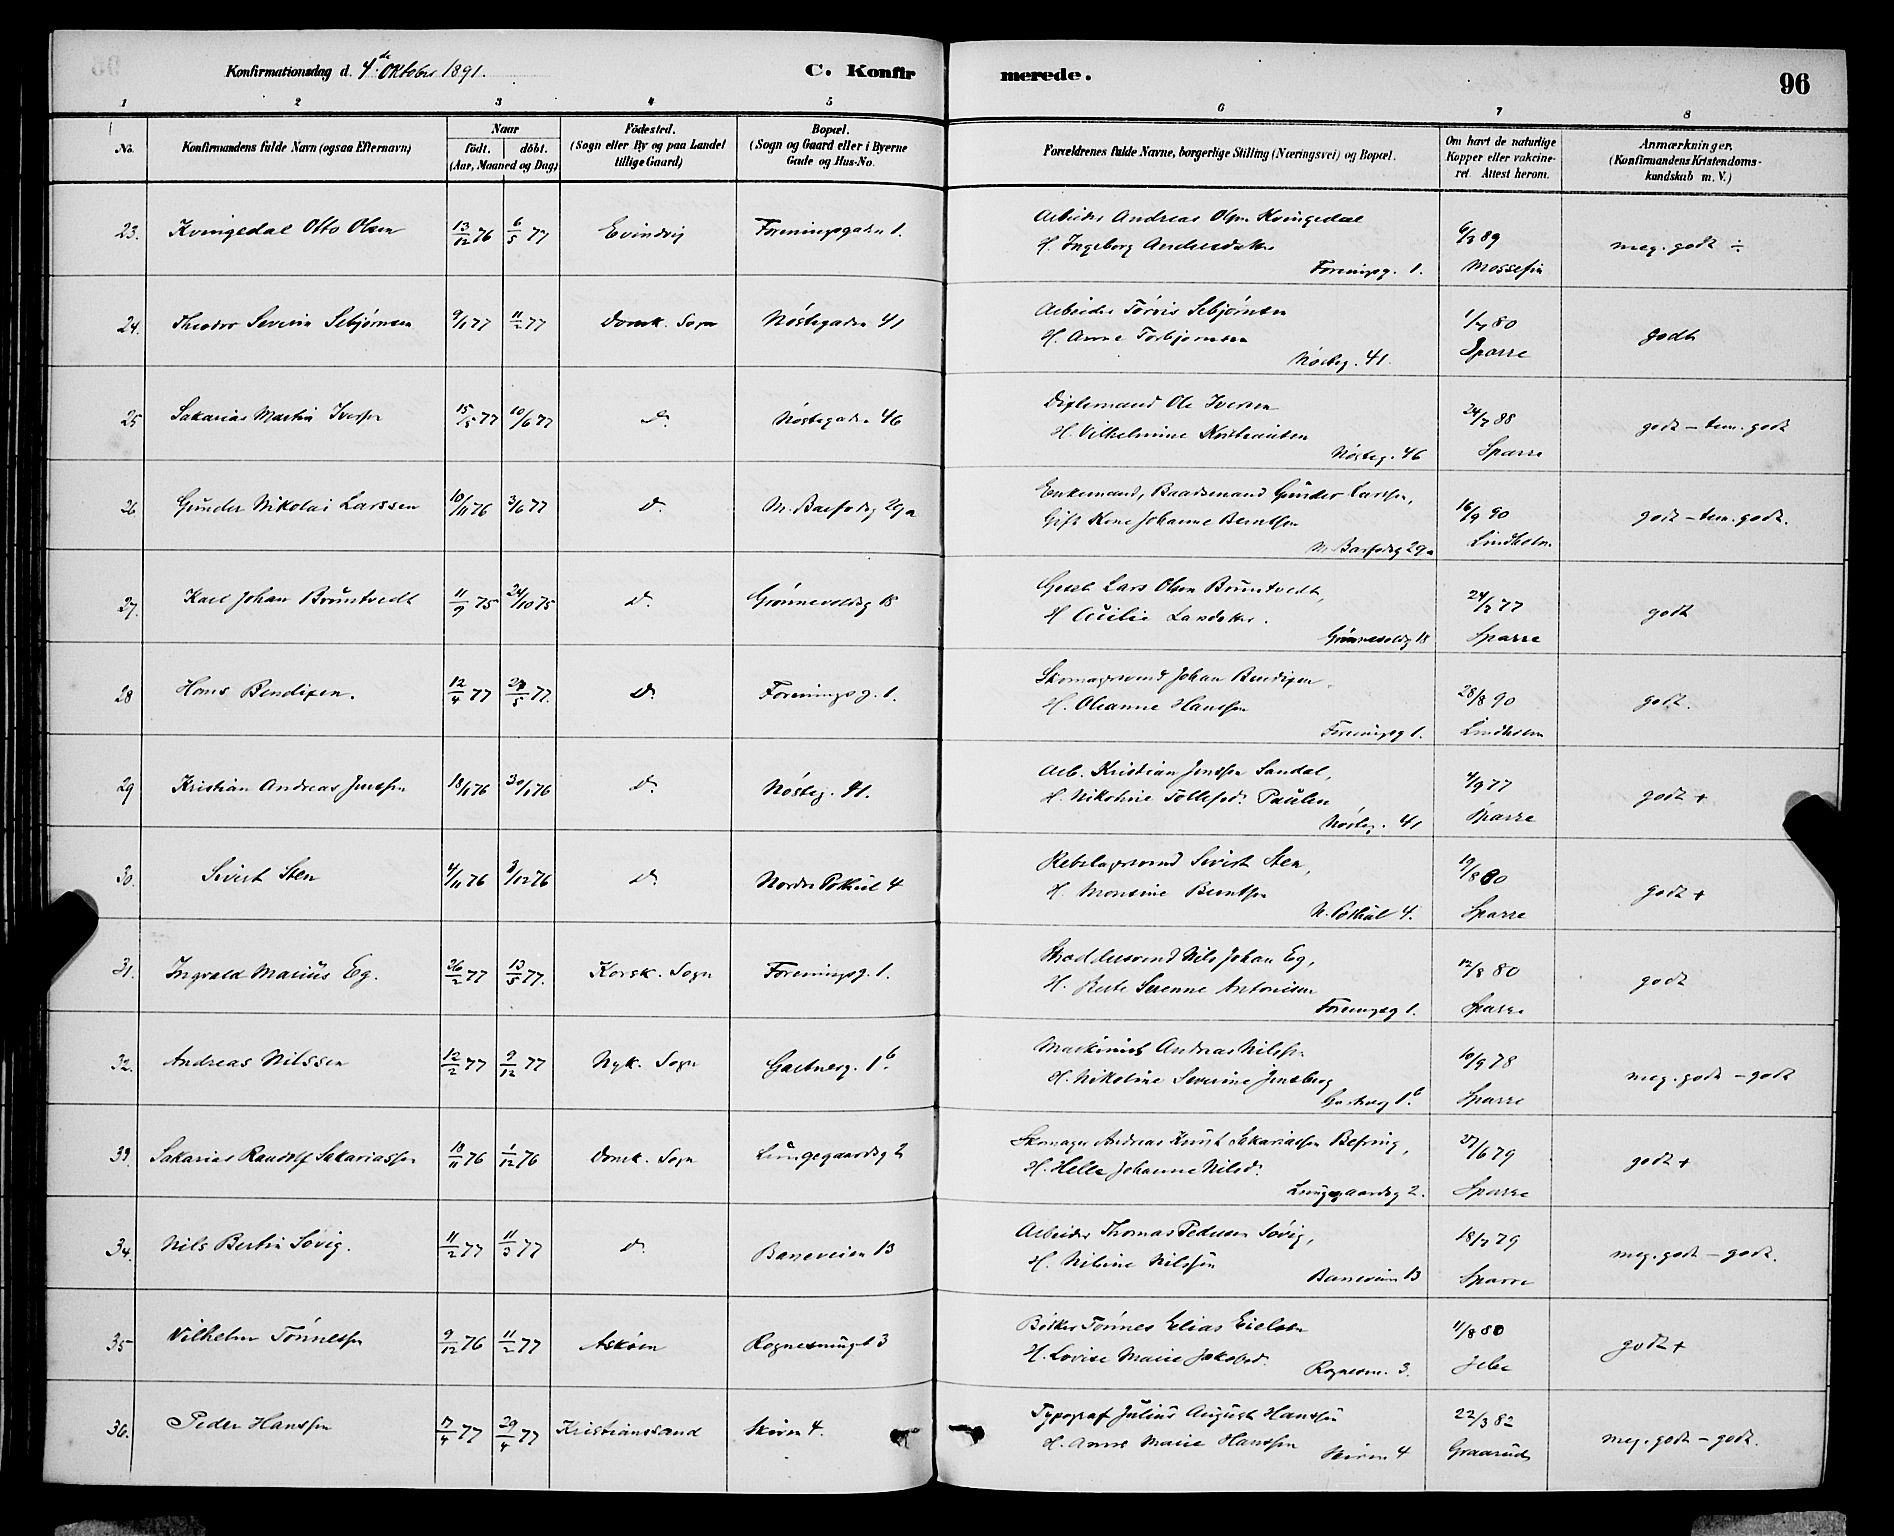 Konfirmationsdag d. 4de Oktober 1891.
C. Konfirmerede.
96
1 2 3 4 5 6 7 8
No.
Konfirmandens fulde Navn (ogsaa Efternavn)
Naar
födt. döbt.
(Aar, Maaned og Dag)
Födested.
(Sogn eller By og paa Landet
tillige Gaard)
Bopæl.
(Sogn og Gaard eller i Byerne
Gade og Hus-No.
Forældrenes fulde Navne, borgerlige Stilling (Næringsvei) og Bopæl.
Om havt de naturlige
Kopper eller vakcine-
ret. Attest herom.
Anmærkninger.
(Konfirmandens Kristendoms-
kundskab m. V.)
23. Kvingedal Otto Olsen 13/12 76 6/5 77 Evindvig Foreningsgaden 1.
Arbeider Andreas Olsen Kvingedal
H. Ingeborg Andersdatter
Foreningsg. 1.
6/3 89
meg. godt ÷
24. Theodor Severin Sebjørnsen 9/1 77 11/2 77 Domk. Sogn Nöstegaden 41
Arbeider Sebjørnsen
H. Anne Torbjørnsen
Nösteg. 41.
1/7 80
Sparre
godt
25 Sakarias Martin Iversen 15/5 77 10/6 77 Do. Nöstegaden 46
Ole Iversen
H. Vilhelmine Kristensen
Nösteg. 46
24/7 88
Sparre
godt – tem. godt
26 Gunder Nikolai Larssen 10/11 76 3/6 77 Do. 29a
Enkemand, Baadsmand Gunder Larssen,
Gift Kone Johanne Berntsen
29a
16/9 90
Lindholm
godt – tem. godt.
27. Karl Johan Bruntvedt 11/9 75 24/10 75 Do. Grönnevoldsg 18
Lars Olsen Bruntvedt,
H
Grönnevoldsg 18
24/7 77
Sparre
godt
28 Hans Bendixen. 12/4 77 27/5 77. Do. Foreningsg. 1.
Skomagersvend Johan Bendixen
H. Oleanne Hanssen
Foreningsg 1.
28/8 90
Lindholm
godt.
29 Kristian Andreas Jenssen 18/1 76 30/1 76 Do. Nösteg. 41.
Arb. Kristian Jenssen Sandal,
H. Nikoline Tollefsd. Paulen
Nösteg. 41
4/9 77
Sparre
godt +
30. Sivert Sten 4/11 76 3/12 76 Do. Nordre Pothul 4
Rebslagersvend Sivert Sten,
H. Monsine Berntsen
N. Pothul 4.
19/8 80
Sparre
godt +
31. Ingvald Marius Eg. 26/2 77 13/5 77. Korsk. Sogn Foreningsg. 1.
Nils Johan Eg,
H. Berte Serenne Antonisen
Foreningsg 1.
12/8 80
Sparre
godt
32. Andreas Nilssen 12/2 77 9/12 77 Nyk. Sogn Gartnerg. 1b.
Maskinist Andreas Nilssen
H. Nikoline Severine Jensberg
Gartnerg 1b.
10/9 78
Sparre
meg. godt – godt
33. Sakarias Randolf Sakariassen 18/11 76 1/12 76 Domk. Sogn Lungegaardsg 2
Skomager Andreas Knut Sakariassen Befring,
H. Helle Johanne Nilsd.
Lungegaardsg 2.
27/6 79
Sparre
godt +
34. Nils Bertin Sövig. 11/2 77 11/3 77 Do. Baneveien 13
Arbeider Thomas Pedersen Sövig,
H. Niline Nilssen
Baneveien 13
18/7 79
Sparre
meg. godt – godt.
35 Vilhelm Tönnessen 9/12 76 11/2 77 Asköen Rognesmuget 3
Bödker Tönnes Elias Eielsen
H. Lovise Marie Jakobsd.
Rognesm. 3.
11/8 80
godt +
36. Peder Hanssen 17/4 77 29/4 77 Kristianssand Skiven 4.
Typograf Julius August Hanssen
H. Anne Marie Hanssen
Skiven 4
22/3 82
Graarud
meg. godt – godt.